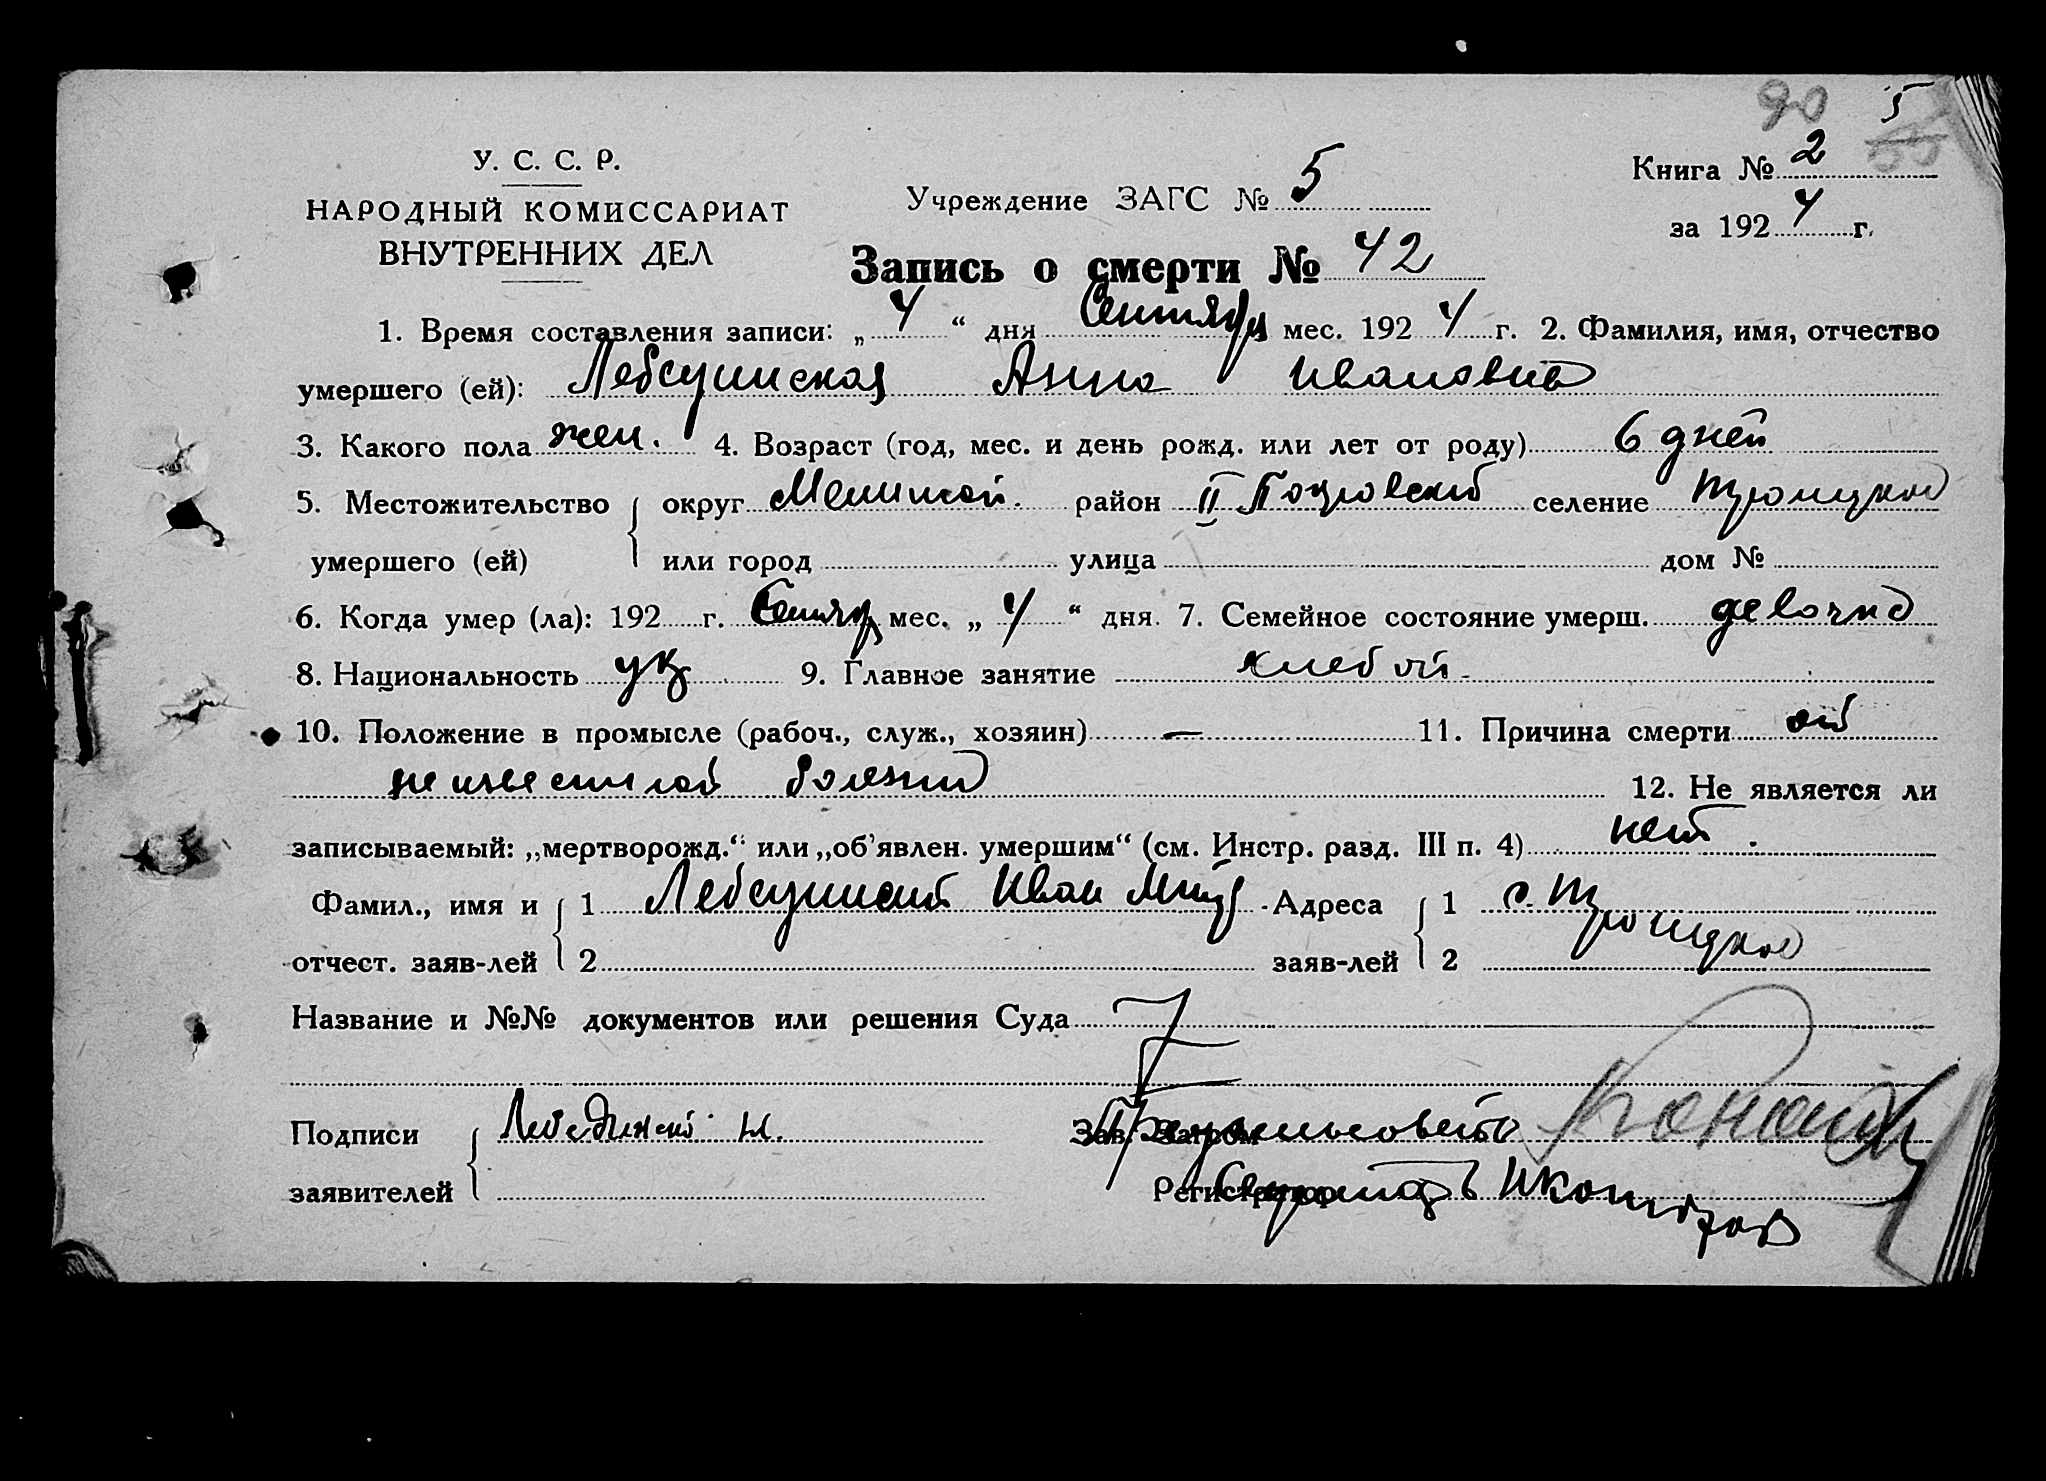 90 5
У. С. С. Р.
НАРОДНЫЙ КОМИССАРИАТ
ВНУТРЕННИХ ДЕЛ
Учреждение ЗАГС № 5
Книга № 2
за 192 4 г.
Запись о смерти № 42
1. Время составления записи: „ 4 “ дня Сентября мес. 192 4 г. 2. Фамилия, имя, отчество
умершего (ей): Анна
3. Какого пола жен. 4. Возраст (год, мес. и день рожд. или лет от роду) 6 дней
5. Местожительство округ район II Покровский селение Троицкое
умершего (ей) или город улица дом №
6. Когда умер (ла): 192 г. Сентяр мес. „ 4 “ дня. 7. Семейное состояние умерш. девочка
8. Национальность ук 9. Главное занятие хлебоп.
10. Положение в промысле (рабоч., служ., хозяин) — 11. Причина смерти от
неизвестной болезни 12. Не является ли
записываемый: „мертворожд.“ или „об’явлен. умершим“ (см. Инстр. разд. III п. 4) нет.
Фамил., имя и 1 Иван Адреса 1 с. Троицкое
отчест. заяв-лей 2 заяв-лей 2
Название и №№ документов или решения Суда
Подписи И. Зав. Загсом
заявителей Регистратор Секретарь